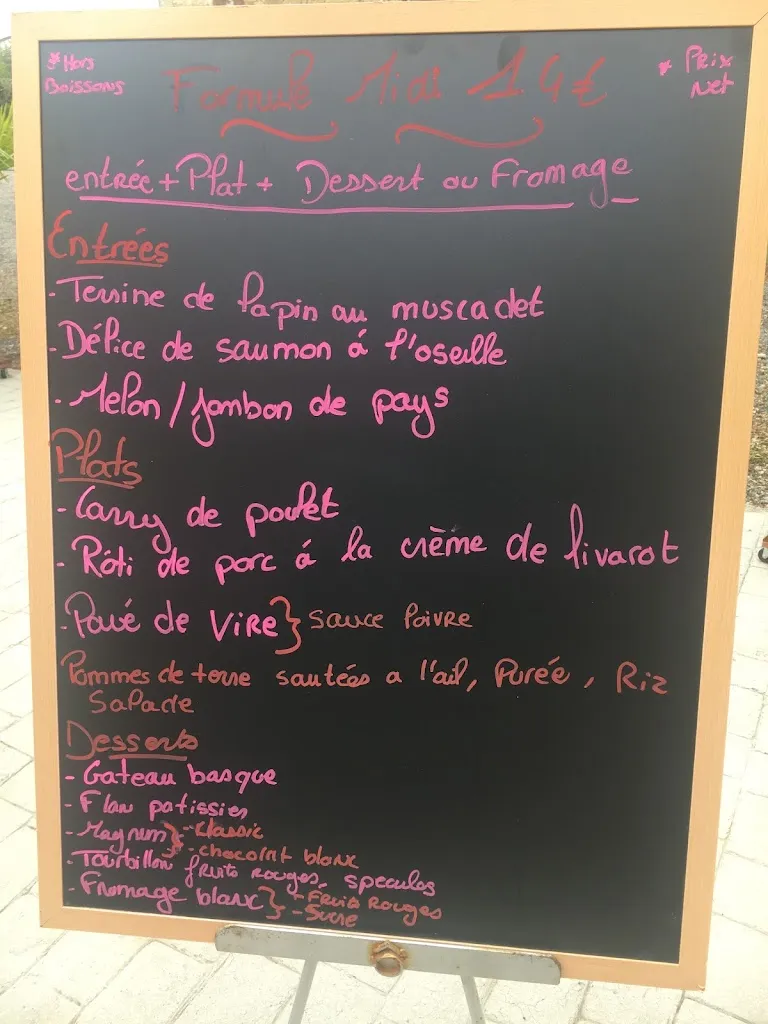 *Hors
Boissons
Formule Midi 14€
* Prix
Net
entrée + Plat + Dessert ou Fromage
Entrées
- Terrine de lapin au muscadet
- Délice de saumon á l'oseille
- Melon / Jambon de pays
Plats
- Carry de poulet
- Rôti de porc á la crème de livarot
- Pavé de VIRE } Sauce Poivre
Pommes de terre sautées a l'ail, Purée, Riz
Salade
Desserts
- Gateau basque
- Flan patissier
- Magnum } - Classic
- chocolat blanc
- Tourbillon fruits rouges, speculos
- Fromage blanc } - Fruits Rouges
- Sucre